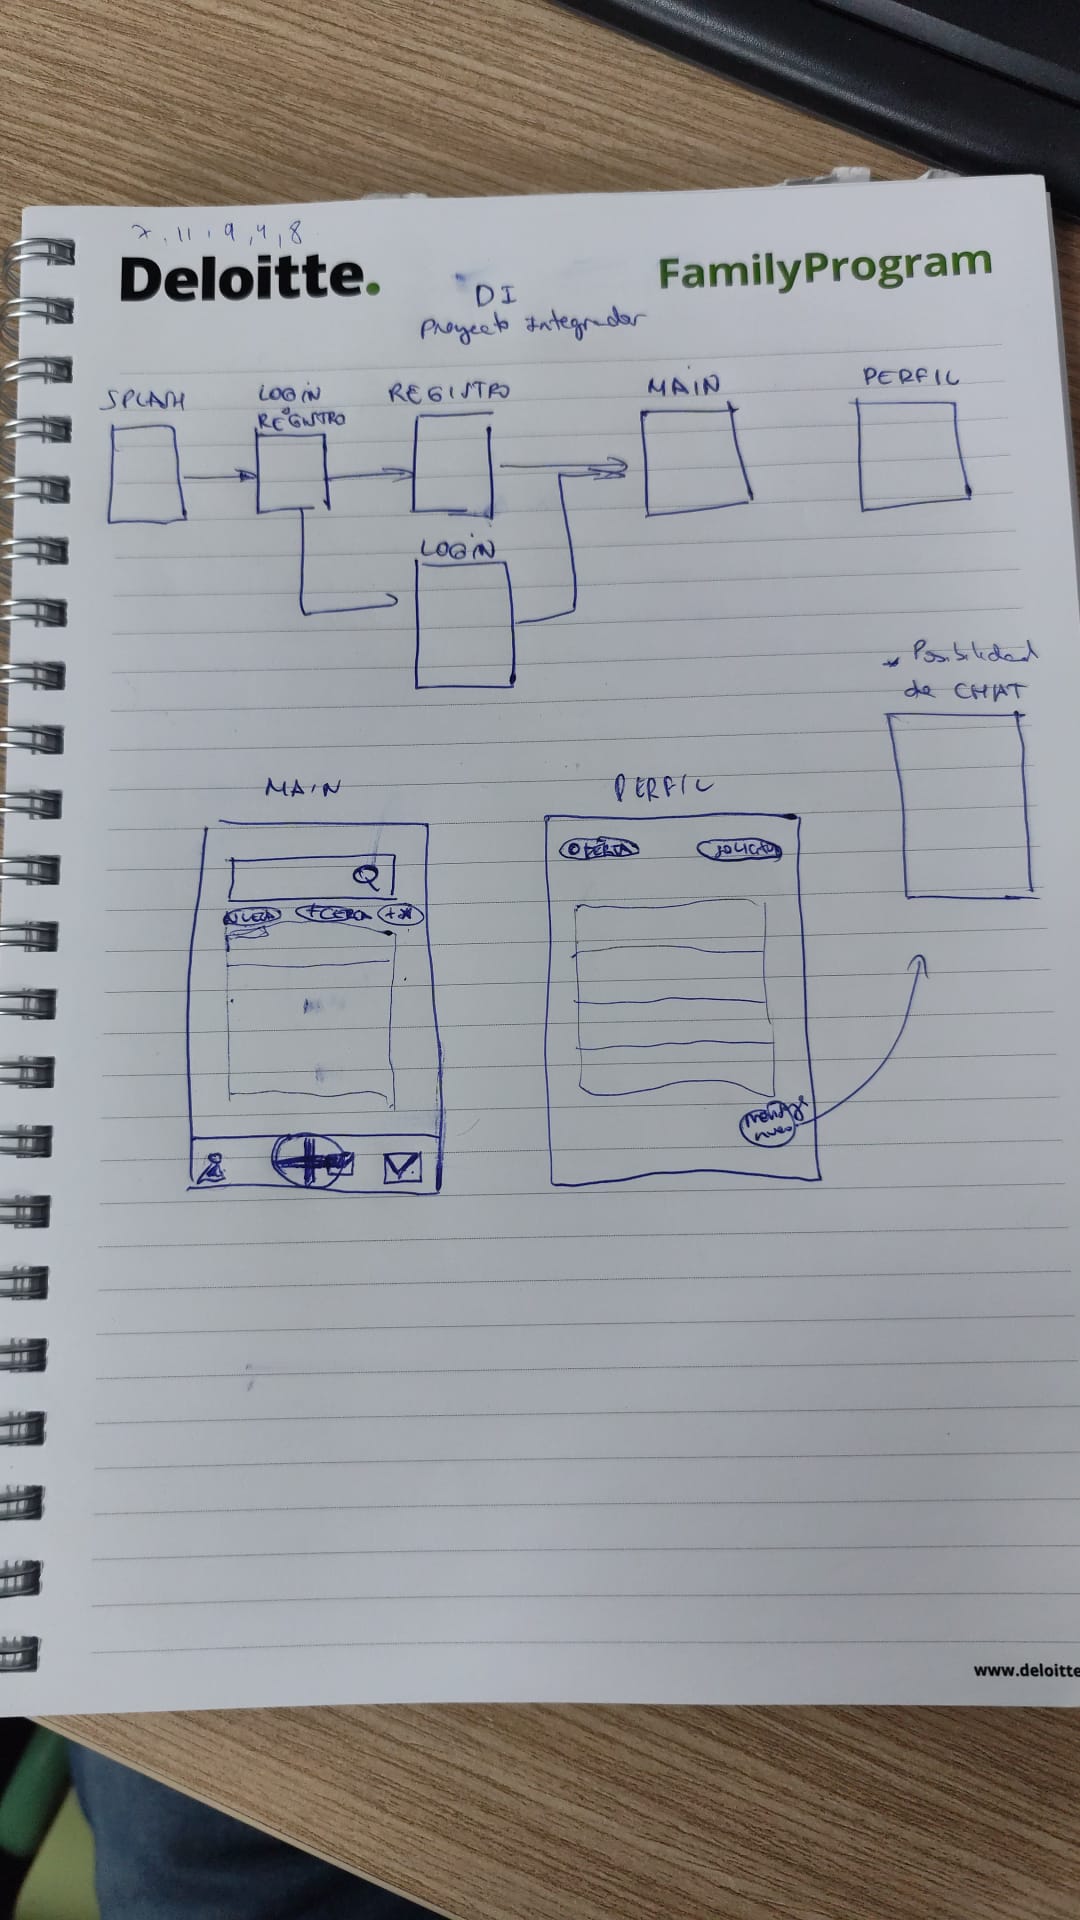 7, 11, 9, 4, 8
Deloitte.
FamilyProgram
DI
Proyecto Integrador
SPLASH
LOGIN
o
REGISTRO
REGISTRO
MAIN
PERFIL
LOGIN
* Posibilidad
de CHAT
MAIN
PERFIL
OFERTA
+CERCA
mensaje
nuevo
www.deloitte